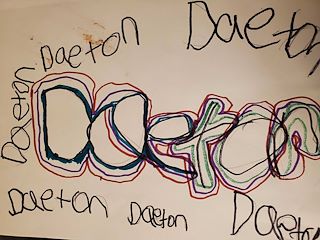 Daeton
Daeton
Daeton
Daeton
Daeton
Daeton
Daeton